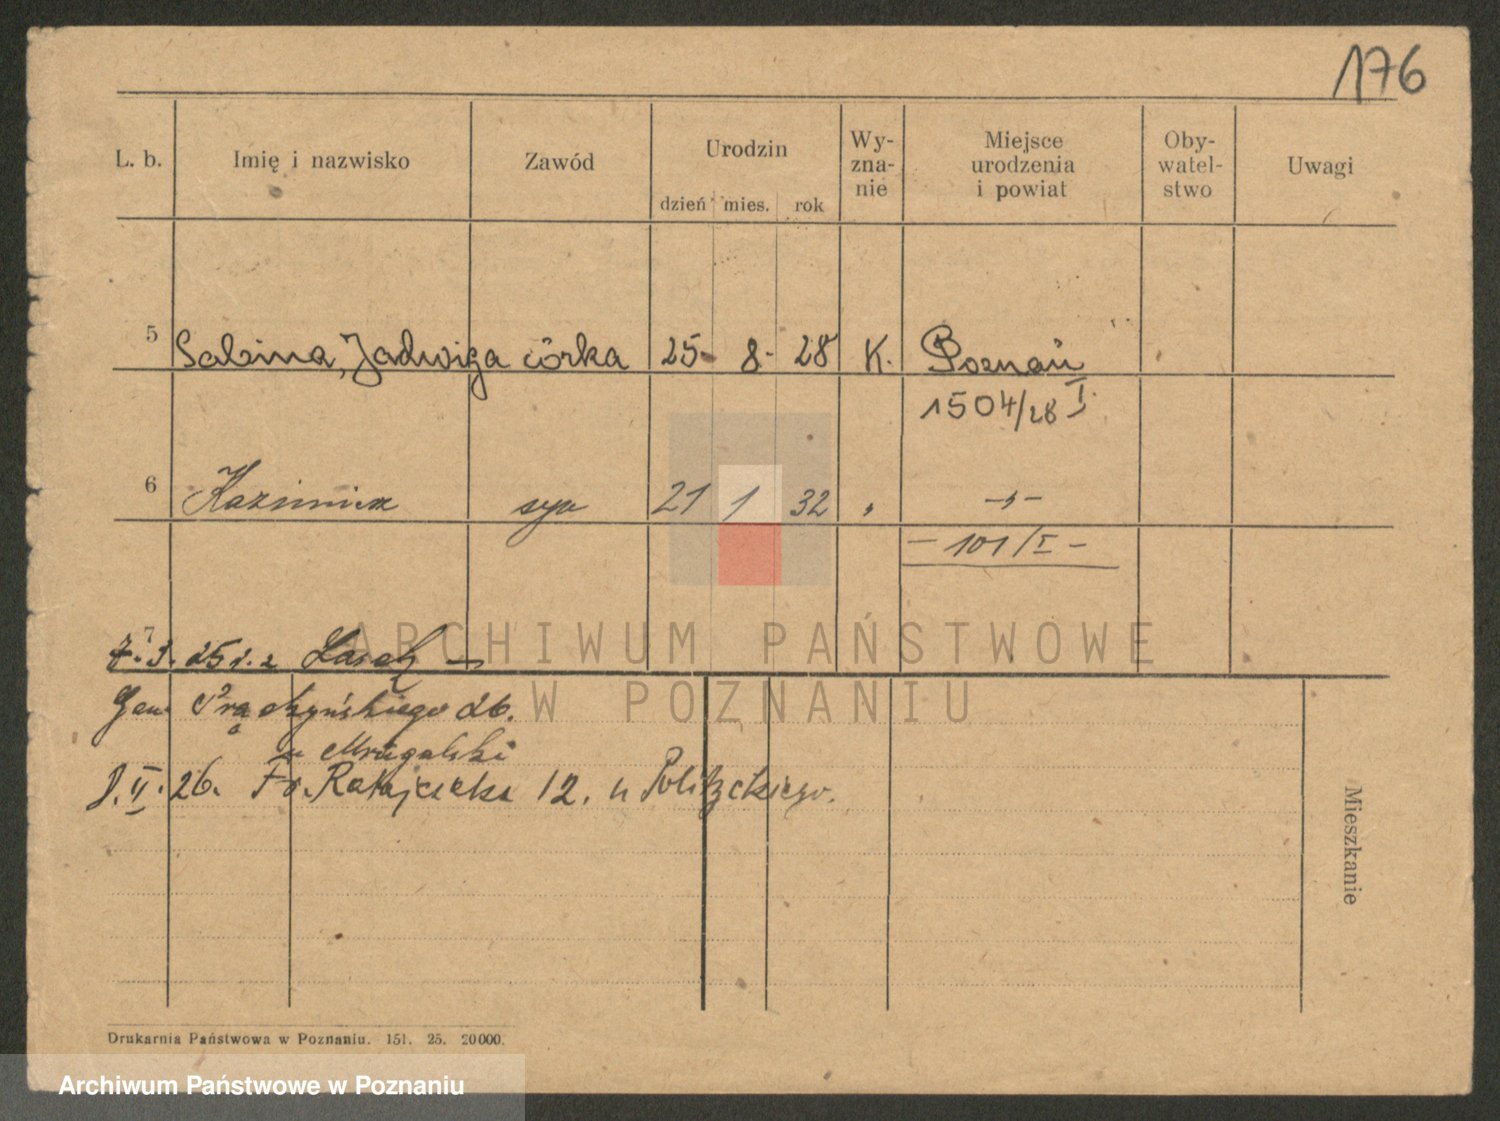 176
L. b. Imię i nazwisko Zawód Urodzin dzień mies. rok Wy-zna-nie Miejsce urodzenia i powiat Oby-watel-stwo Uwagi
5 Sabina, Jadwiga córka 25 8 28 K. Poznań
1504/28 I
6 Kazimierz syn 21 1 32 " -"-
- 101/I -
7
7. 3. 25
Gen. Prądzyńskiego 26.
u Mrugalski
J. II. 26. Fr. Ratajczaka 12. u
Mieszkanie
Drukarnia Państwowa w Poznaniu. 151. 25. 20000.
ARCHIWUM PAŃSTWOWE
W POZNANIU
Archiwum Państwowe w Poznaniu